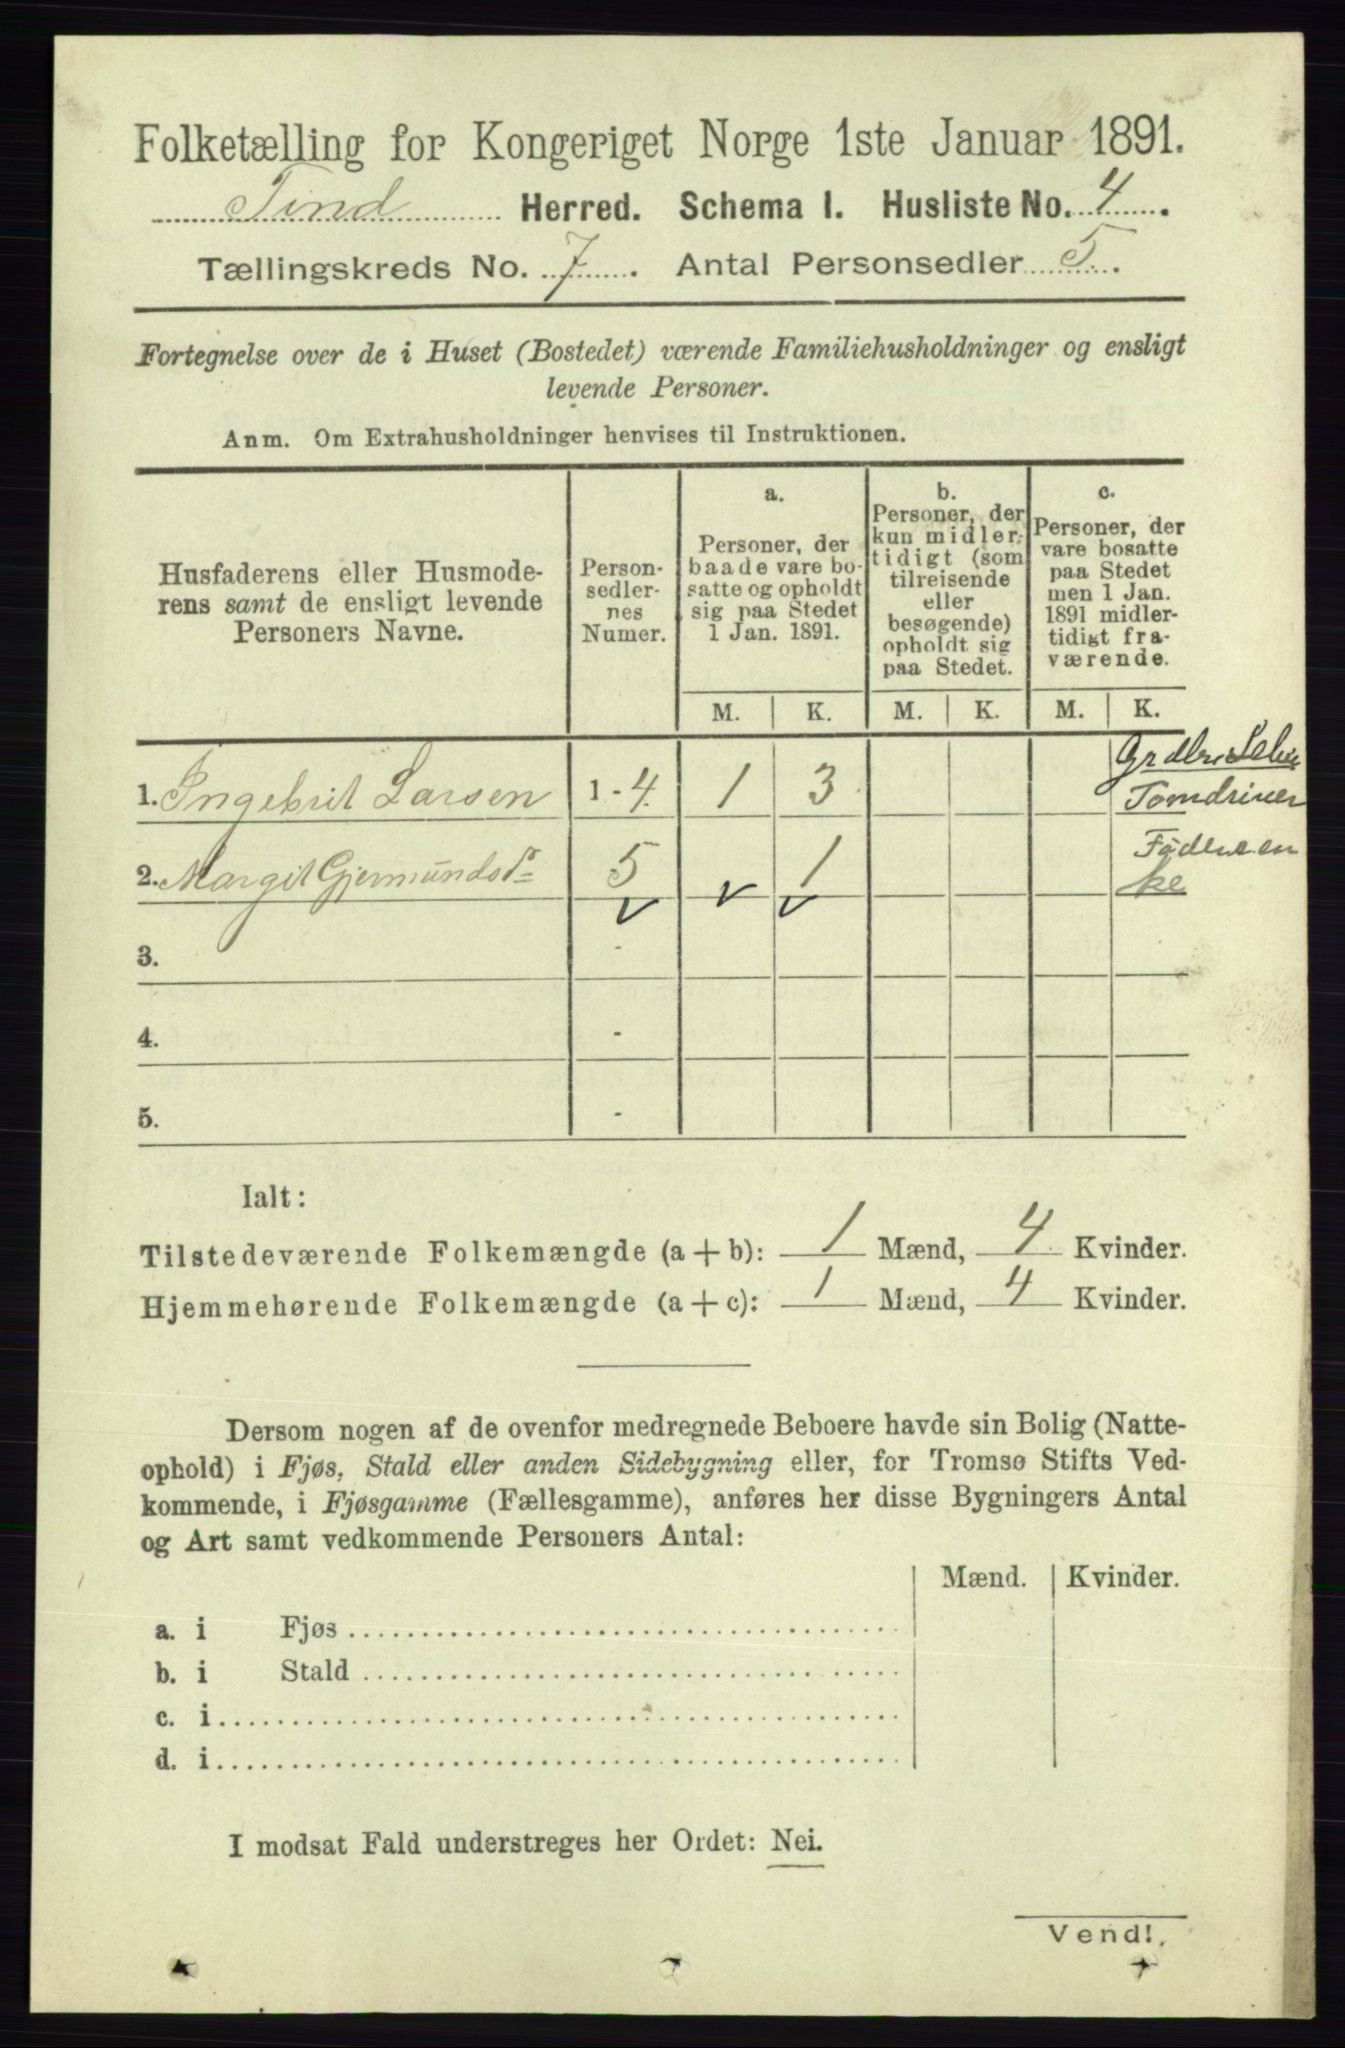 Folketælling for Kongeriget Norge 1ste Januar 1891.
Tind Herred. Schema I. Husliste No. 4.
Tællingskreds No. 7. Antal Personsedler 5.
Fortegnelse over de i Huset (Bostedet) værende Familiehusholdninger og ensligt
levende Personer.
Anm. Om Extrahusholdninger henvises til Instruktionen.
Husfaderens eller Husmode-
rens samt de ensligt levende
Personers Navne.
Person-
sedler-
nes
Numer.
a.
Personer, der
baade vare bo-
satte og opholdt
sig paa Stedet
1 Jan. 1891.
b.
Personer, der
kun midler-
tidigt (som
tilreisende
eller
besøgende)
opholdt sig
paa Stedet.
c.
Personer, der
vare bosatte
paa Stedet
men 1 Jan.
1891 midler-
tidigt fra-
værende.
M. K. M. K. M. K.
1. Ingebrit Larsen 1 - 4. 1 3
2. Margit Gjermundsd. 5 1
3. -
4. -
5. -
Ialt:
Tilstedeværende Folkemængde (a + b): 1 Mænd, 4 Kvinder.
Hjemmehørende Folkemængde (a + c): 1 Mænd, 4 Kvinder.
Dersom nogen af de ovenfor medregnede Beboere havde sin Bolig (Natte-
ophold) i Fjøs, Stald eller anden Sidebygning eller, for Tromsø Stifts Ved-
kommende, i Fjøsgamme (Fællesgamme), anføres her disse Bygningers Antal
og Art samt vedkommende Personers Antal:
Mænd. Kvinder.
a. i Fjøs
b. i Stald
c. i
d. i
I modsat Fald understreges her Ordet: Nei.
Vend!.